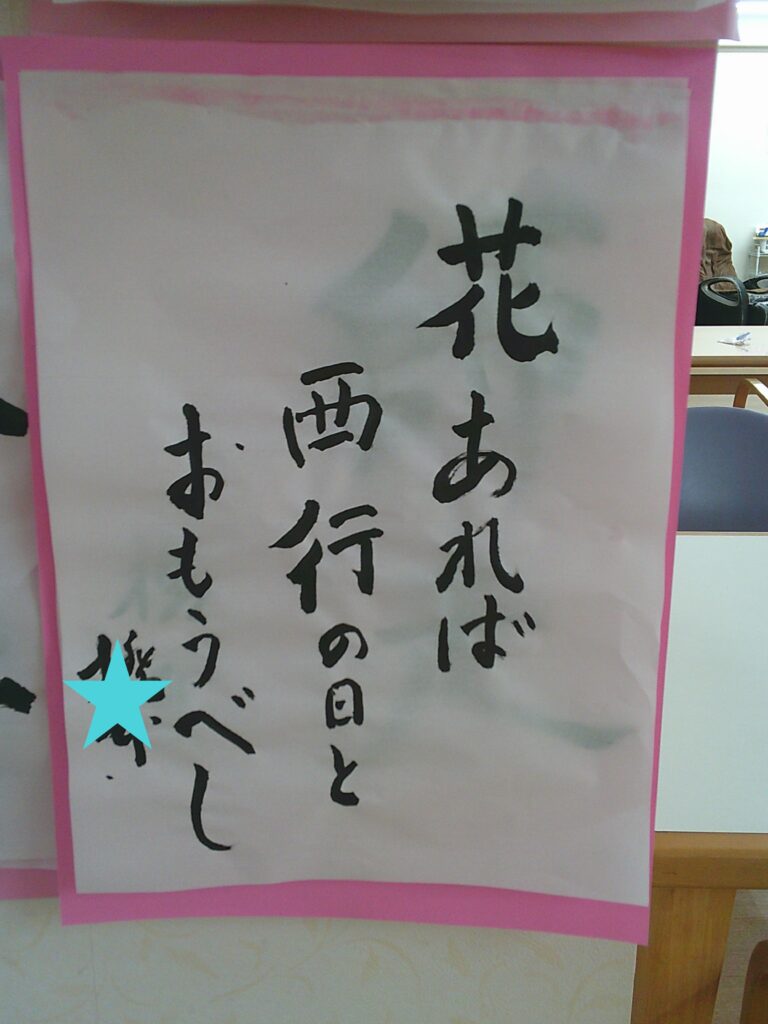 花あれば
西行の日と
おもうべし